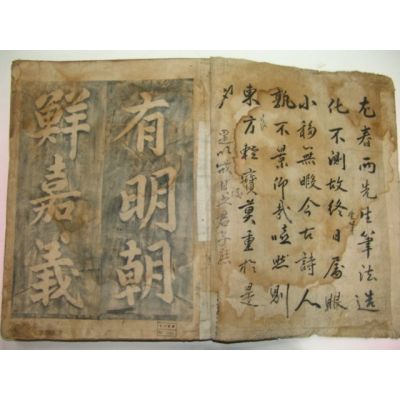 尤春兩先生筆法造
化不測故終日屬眼
小移無暇今古詩人
孰不景仰哉噫然則
東方稀寶莫重於是
之君子
有明朝
鮮嘉義